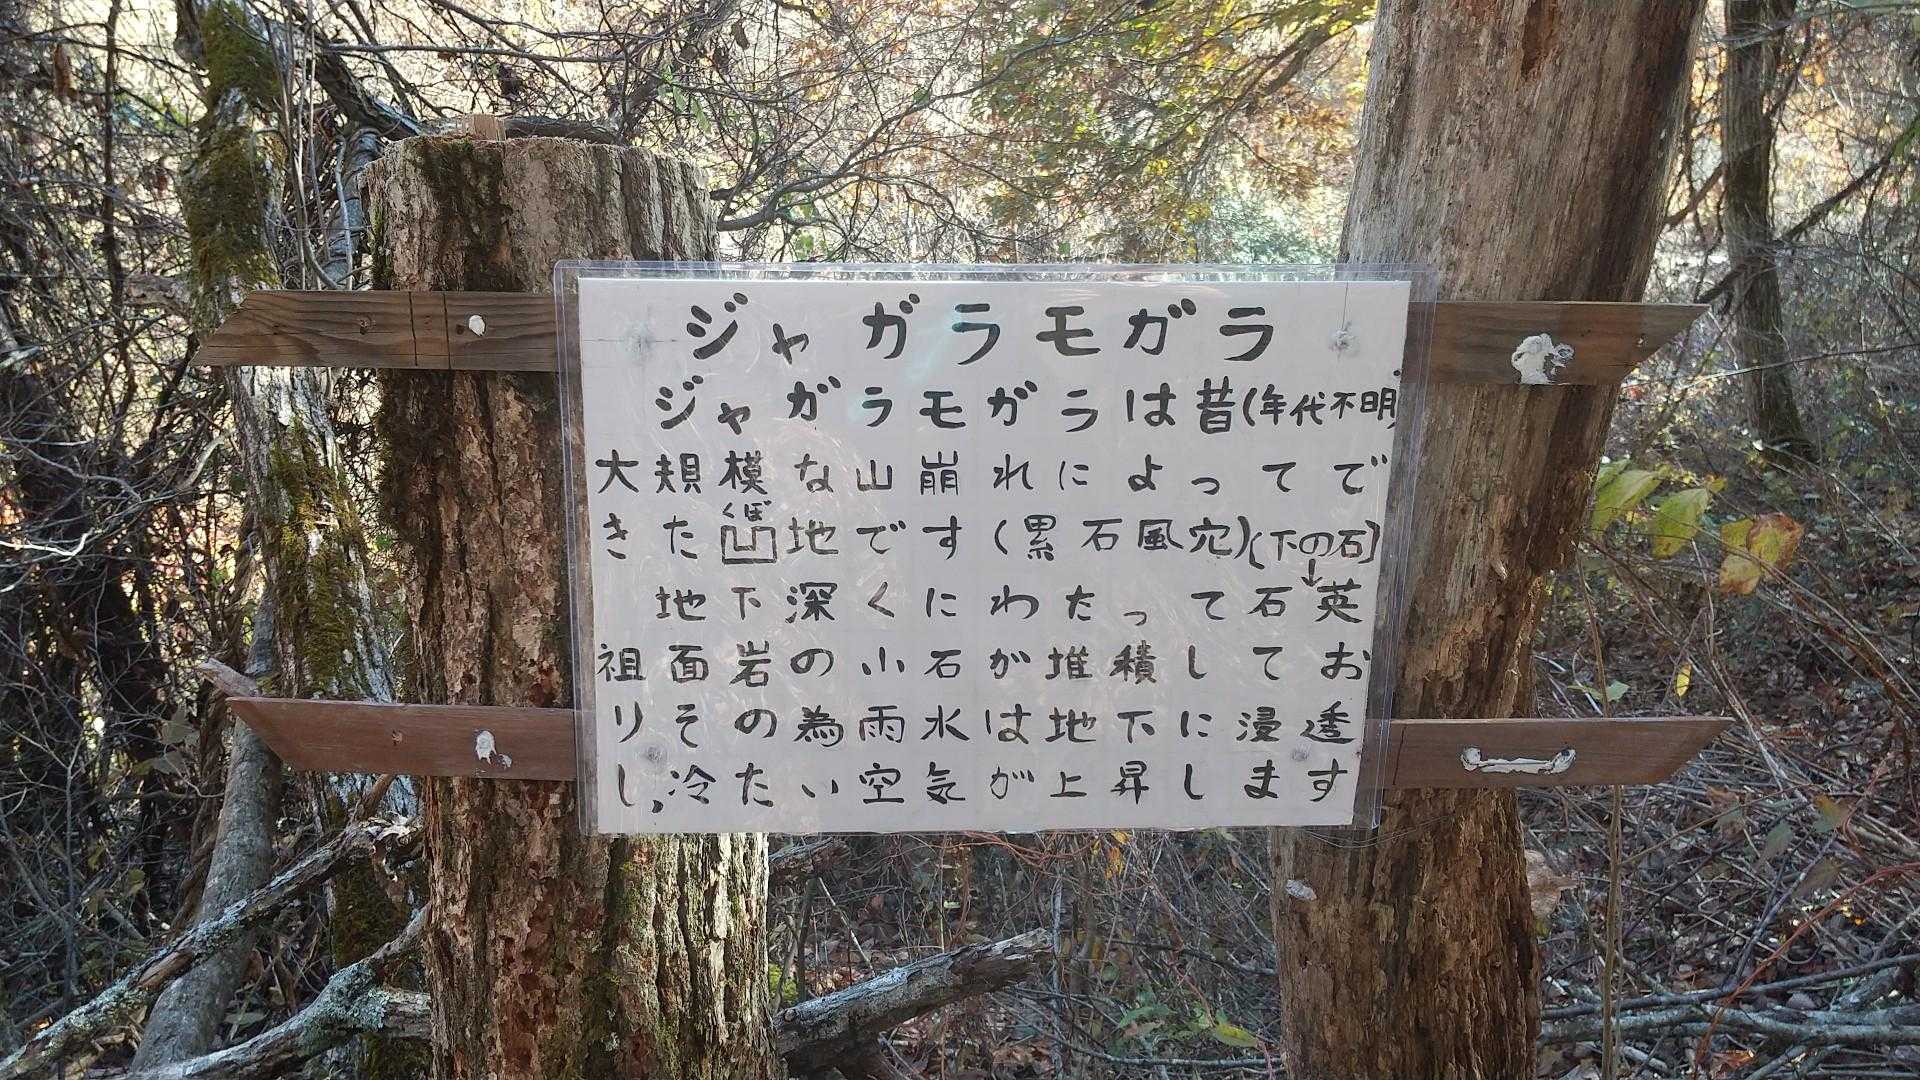 ジャガラモガラ
ジャガラモガラは昔(年代不明)
大規模な山崩れによってで
くぼ
きた凹地です(累石風穴)(下の石)
↓
地下深くにわたって石英
祖面岩の小石が堆積してお
りその為雨水は地下に浸透
し,冷たい空気が上昇します